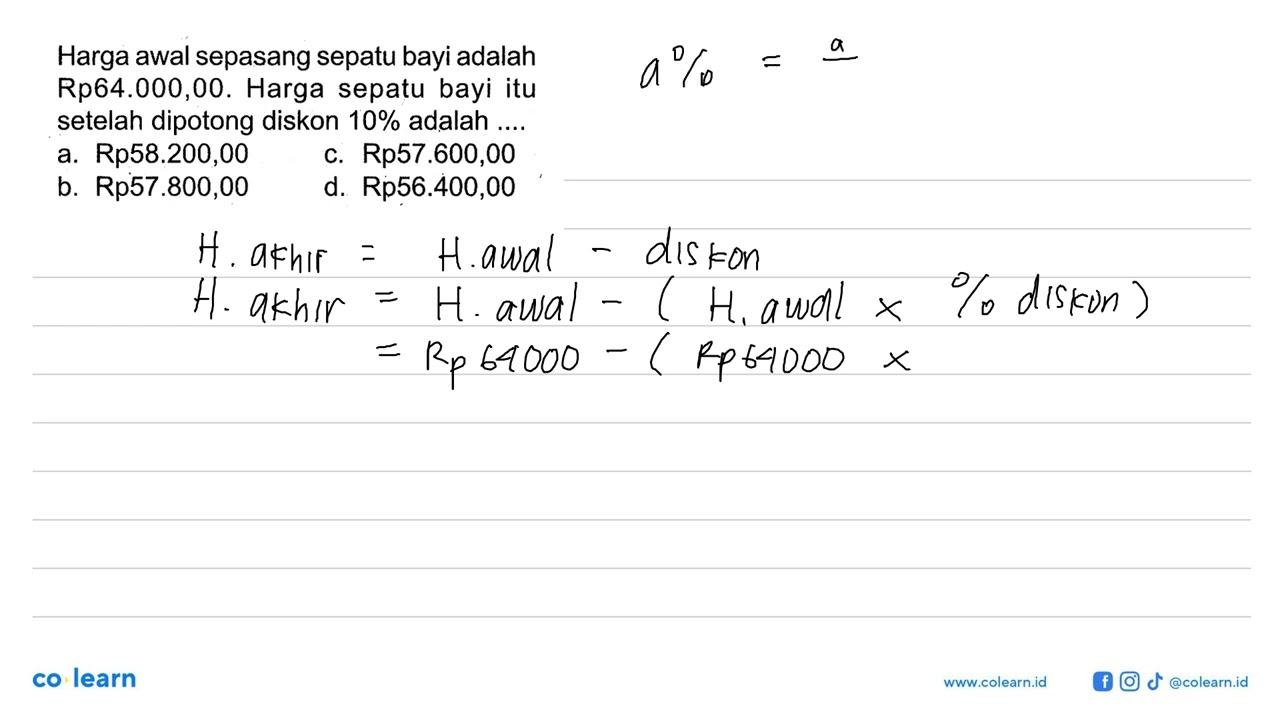 Harga awal sepasang sepatu bayi adalah
Rp64.000,00. Harga sepatu bayi itu
setelah dipotong diskon 10% adalah ....
a. Rp58.200,00 c. Rp57.600,00
b. Rp57.800,00 d. Rp56.400,00
a% = a
H. akhir = H. awal - diskon
H. akhir = H. awal - ( H. awal x % diskon )
= Rp 64000 - ( Rp 64000 x
co learn
www.colearn.id @colearn.id